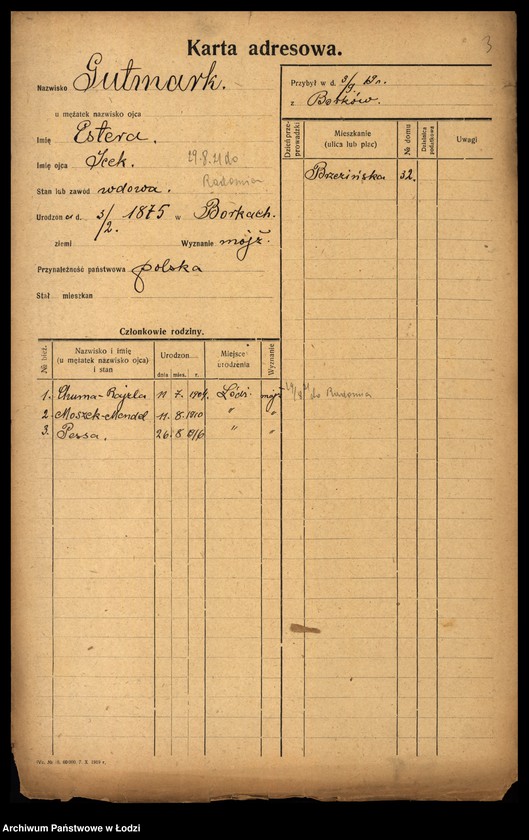 Karta adresowa.
3
Nazwisko Gutmark.
u mężatek nazwisko ojca
Imię Estera.
Imię ojca Icek.
29.8.21 do
Radomia
Stan lub zawód wdowa.
Urodzon a d. 3/2. 1875 w Borkach.
ziemi Wyznanie mojż.
Przynależność państwowa polska
Stał. mieszkan
Przybył w d. 3/9 19 r.
z Borków.
Dzień prze-prowadzki
Mieszkanie
(ulica lub plac)
№ domu
Dzielnica podatkowa
Uwagi
Brzezińska 32.
Członkowie rodziny.
№ bież.
Nazwisko i imię
(u mężatek nazwisko ojca)
i stan
Urodzon
dnia mies. r.
Miejsce
urodzenia
Wyznanie
1. Chuma-Rajzla 11 7. 1904. Łódź. mojż do Radomia
2. Moszek-Mendel 11. 8. 1910 " "
3. Pessa. 26. 8 1916 " "